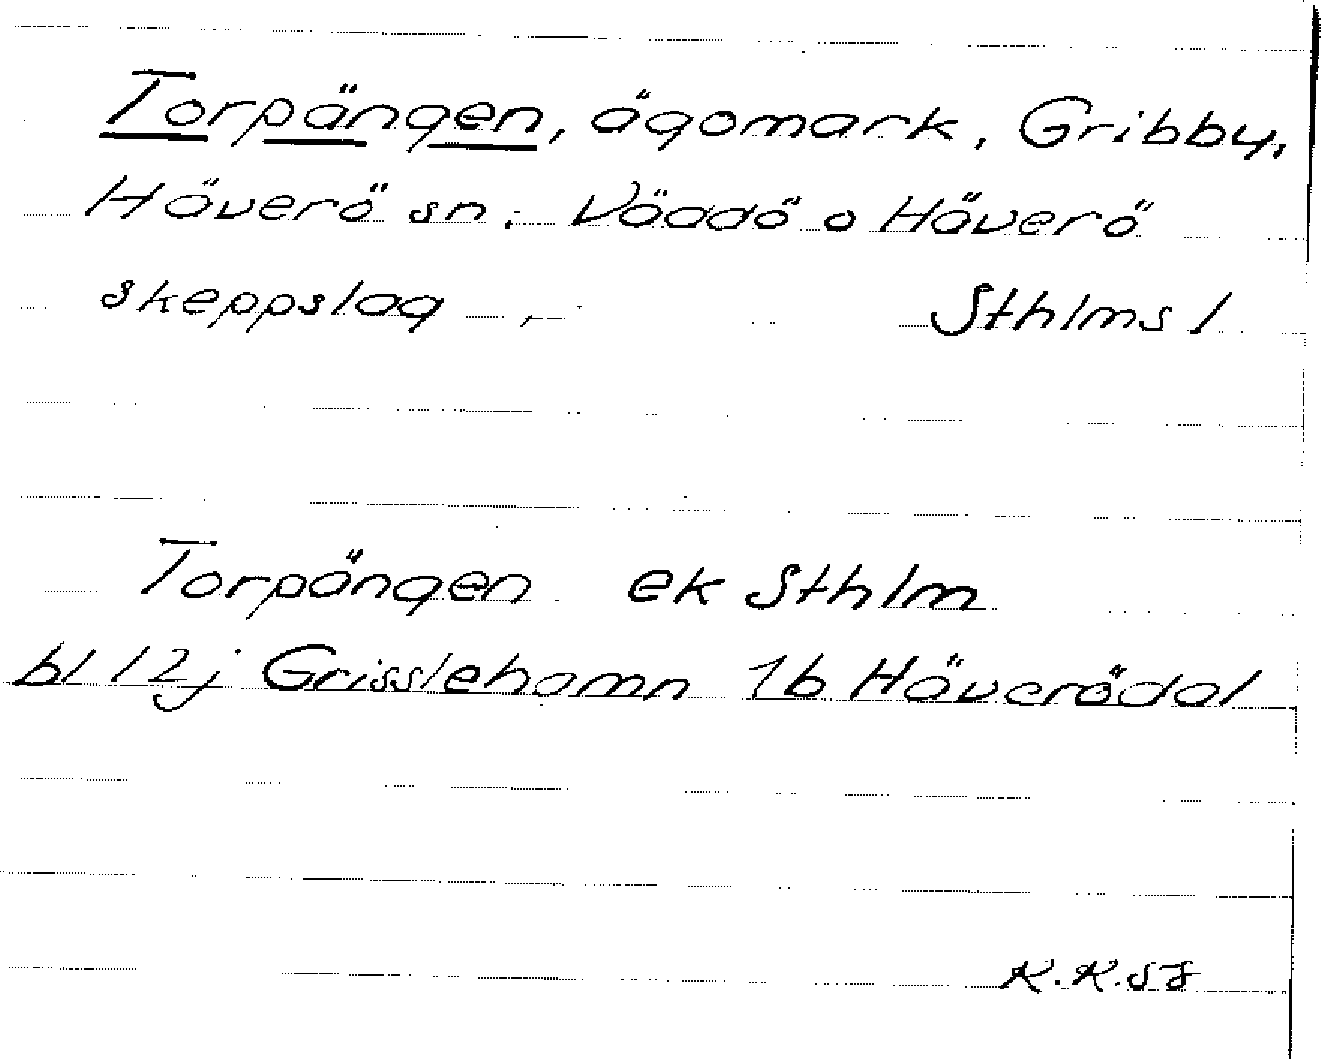 Torpängen, ägomark, Gribby,
Häverö sn. Väddö o Häverö
skeppslag Sthlms l
Torpängen ek Sthlm
bl 12j Grisslehamn 1b Häverödal
K.K.58